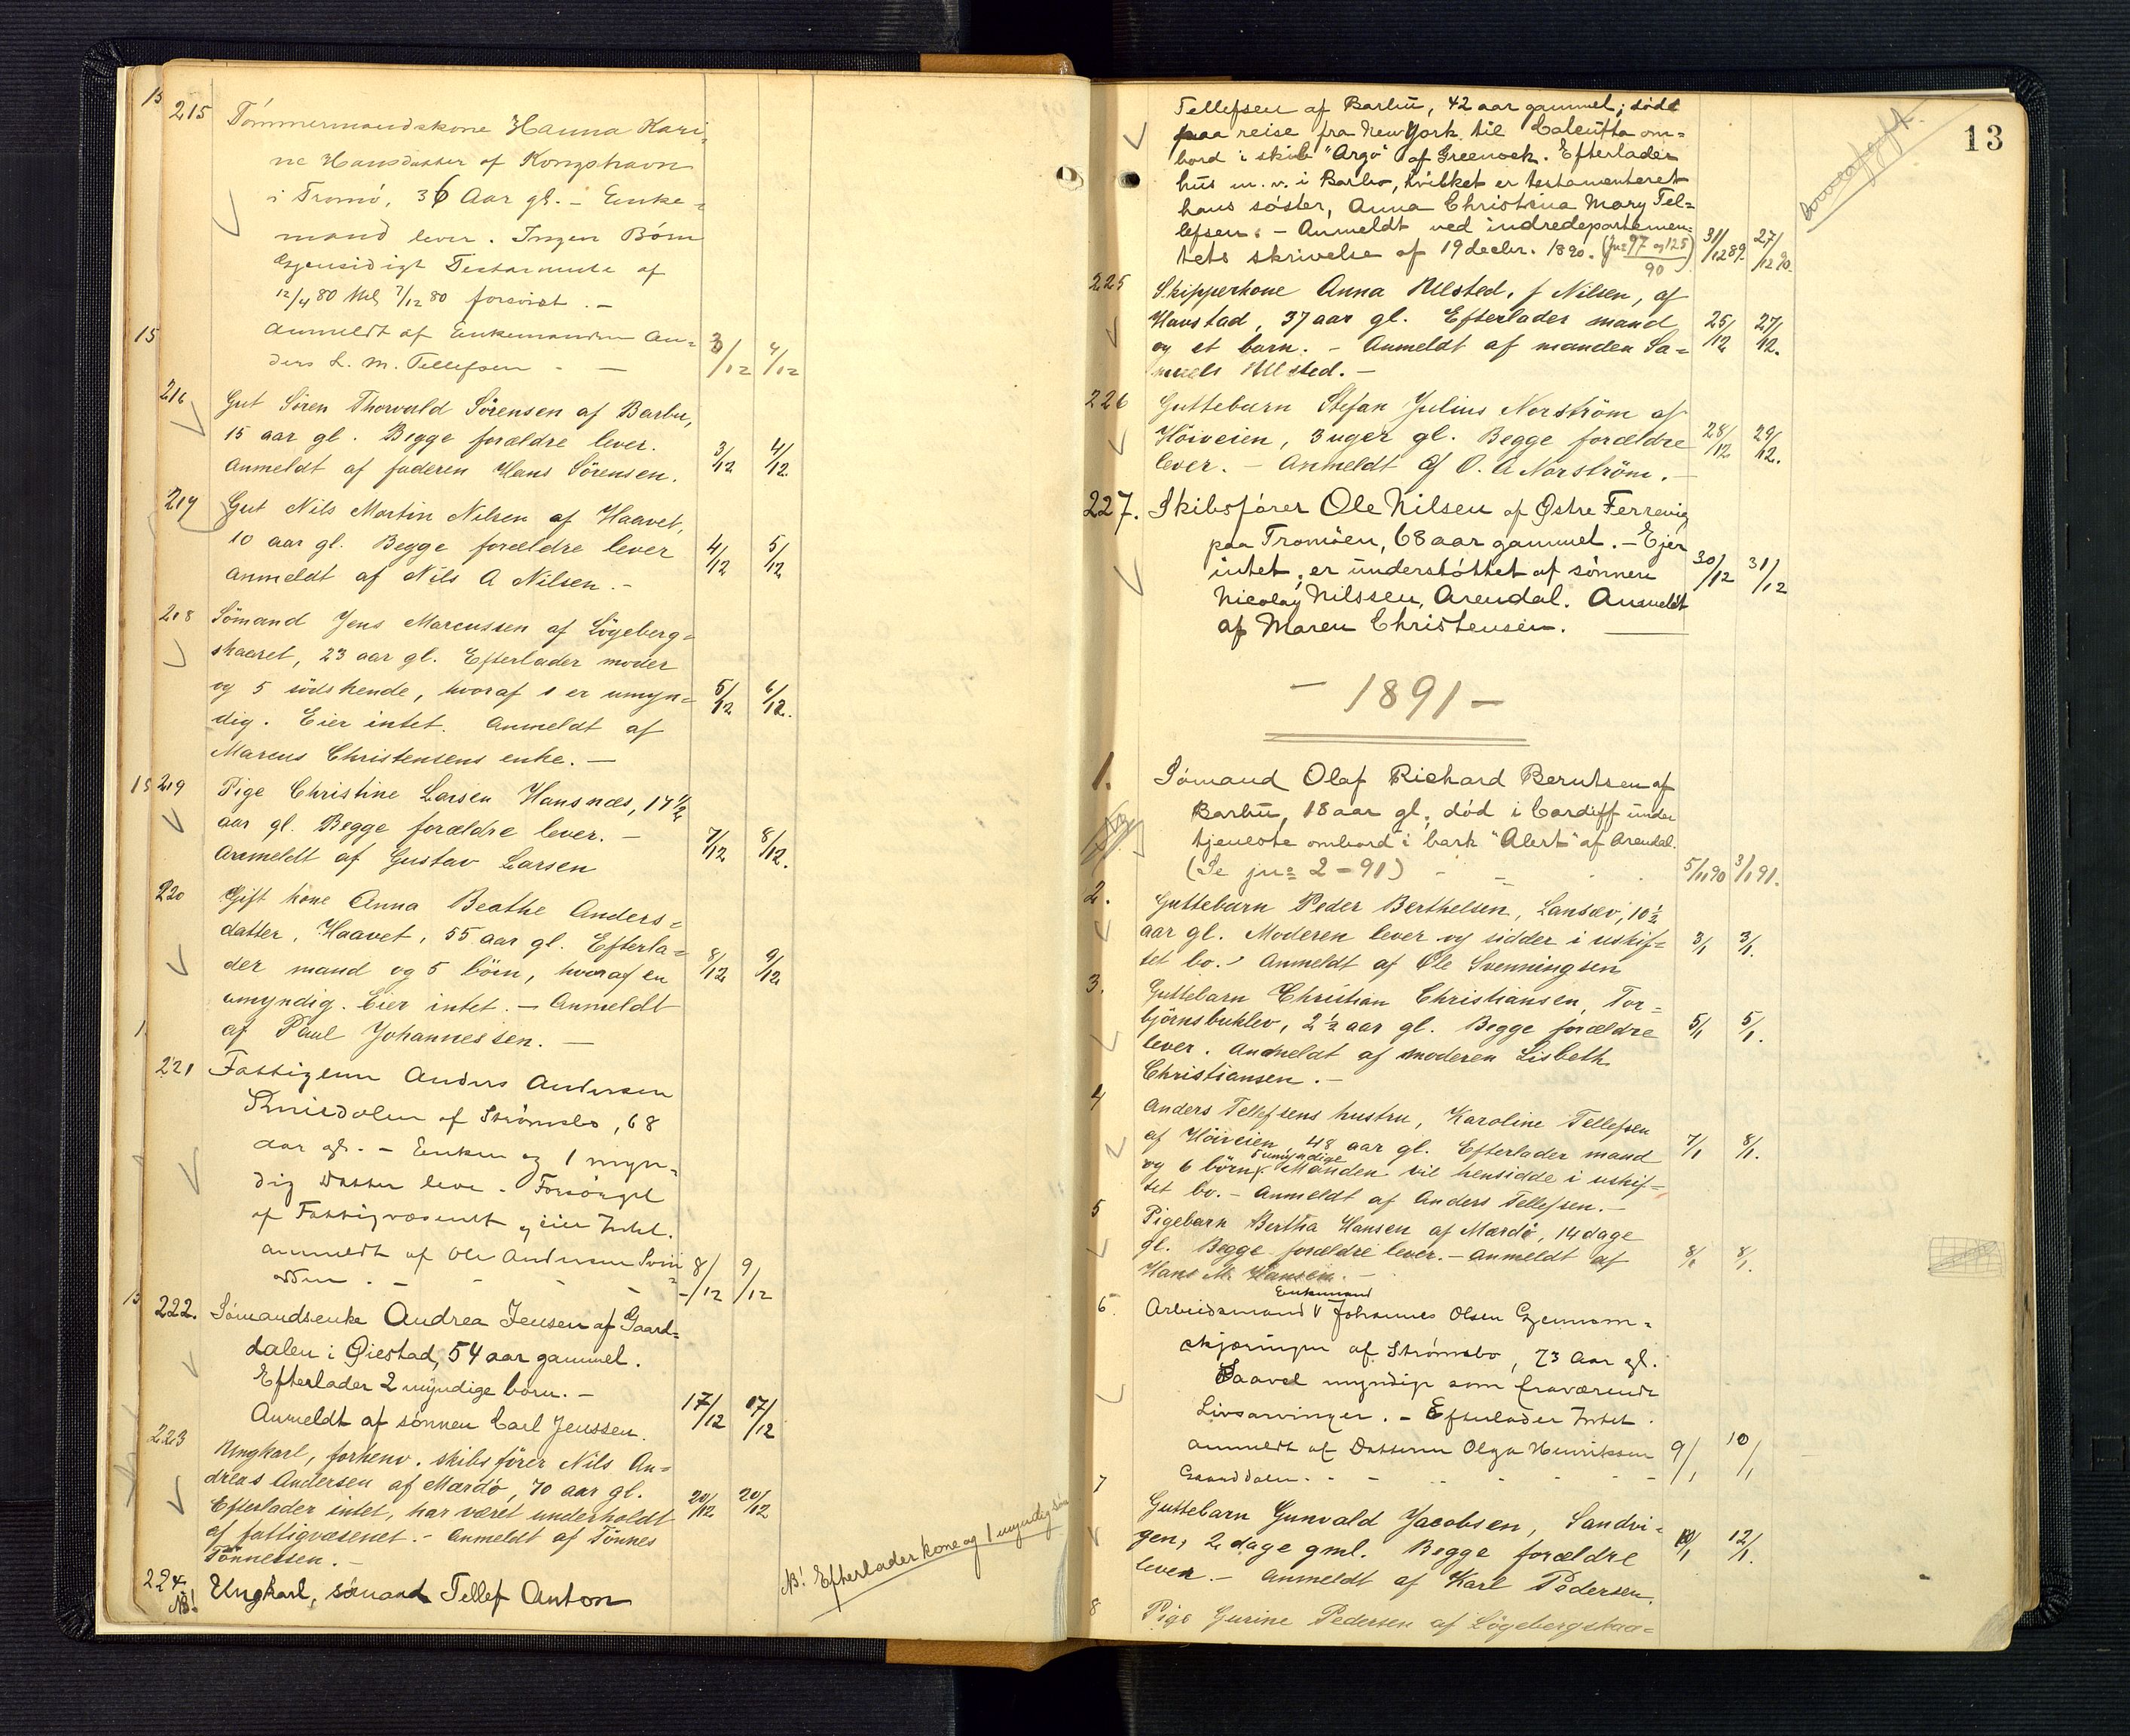 215 Tömmermandskone Hanna Kari-
ne Hansdatter af Kongshavn
i Tromö, 36 Aar gl. – Enke=
mand lever. Ingen Börn
Gjensidigt Testamente af
12/4 80 7/12 80 forevist. –
Anmeldt af Enkemanden An=
ders L. M. Tellefsen – — 3/12 4/12
216 Gut Sören Thorvald Sörensen af Barbu,
15 aar gl. Begge forældre lever.
Anmeldt af faderen Hans Sörensen. 3/12 4/12
217 Gut Nils Martin Nilsen af Haavet,
10 aar gl. Begge forældre lever
Anmeldt af Nils A Nilsen. – 4/12 5/12
218 Sömand Jens Marcussen af Lögeberg=
skaaret, 23 aar gl. Efterlader moder
og 5 södskende, hvoraf 1 er umyn=
dig. Eier intet. Anmeldt af 5/12 6/12.
Marcus Christensens enke. —
219 Pige Christine Larsen Hansnæs, 17 1/2
aar gl. Begge forældre lever. –
Anmeldt af Gustav Larsen 7/12 8/12.
220 Gift kone Anna Beathe Anders=
datter, Haavet, 55 aar gl. Efterla=
der mand og 5 börn, hvoraf en 8/12 9/12
umyndig. Eier intet. – Anmeldt
af Paul Johannessen. —
221 Fattiglem Anders Andersen
af Strömsbo, 68
Aar gl. – Enken og 1 myn=
dig Datter lever. Forsörget
af Fattigvæsenet og eier Intet.
Anmeldt af Ole Andersen
8/12 9/12
222. Sömandsenke Andrea Jensen af Gaard=
dalen i Øiestad, 54 aar gammel.
Efterlader 2 myndige börn. –
Anmeldt af sönnen Carl Jenssen. 17/12 17/12
223 Ungkarl, forhenv. skibsförer Nils An=
dreas Andersen af Mærdö, 70 aar gl.
Efterlader intet, har været underholdt 20/12 20/12
af fattigvæsenet. – Anmeldt af Tönnes
Tönnessen. –
224. NB! Ungkarl, sömand Tellef Anton
NB! Efterlader kone og 1 myndig sön
13
Tellefsen af Barbu, 42 aar gammel; döde
paa reise fra New York til Calcutta om=
bord i skib "Argo" af Greenock. Efterlader
hus m. v. i Barbo, hvilket er testamenteret
hans söster, Anna Christina Mary Tel=
lefsen. – Anmeldt ved indredepartemen=
tets skrivelse af 19 decbr. 1890. (jn: 97 og 125/90) 31/12 89. 27/12 90.
225 Skipperkone Anna Ulsted, f Nilsen, af
Havstad, 37 aar gl. Efterlader mand 25/12 27/12.
og et barn. – Anmeldt af manden Sa=
muels Ulsted. –
226 Guttebarn Stefan Julius Norström af
Höiveien, 3 uger gl. Begge forældre 28/12 29/12.
lever. – Anmeldt af O. A Norström. –
227. Skibsförer Ole Nilsen af Østre Ferrevig
paa Tromöen, 68 aar gammel. – Ejer
intet; er understöttet af sönnen 30/12 31/12
Nicolay Nilssen, Arendal. Anmeldt
af Maren Christensen. —
– 1891 –
1. Sömand Olaf Richard Berntsen af
Barbu, 18 aar gl; död i Cardiff under
tjeneste ombord i bark "Alert" af Arendal.
(Se jn: 2 – 91) 5/11 90 3/1 91.
2. Guttebarn Peder Berthelsen, Langæv, 10 1/2
aar gl. Moderen lever og sidder i uskif= 3/1 3/1.
tet bo. – Anmeldt af Ole Svenningsen
3. Guttebarn Christian Christiansen, Tor=
björnsbuklev, 2 1/2 aar gl. Begge forældre 5/1 5/1.
lever. Anmeldt af moderen Lisbeth
Christiansen. –
4 Anders Tellefsens hustru, Karoline Tellefsen
af Höiveien, 48 aar gl. Efterlader mand 7/1 8/1.
5 umyndige
og 6 börn. Manden vil hensidde i uskif=
tet bo. – Anmeldt af Anders Tellefsen. –
5 Pigebarn Bertha Hansen af Mærdö, 14 dage
gl. Begge forældre lever. – Anmeldt af 8/1 8/1.
Hans M. Hansen. –
Enkemand
6. Arbeidsmand V Johannes Olsen Gjennom=
skjæringen af Strömsbo, 73 Aar gl.
Saavel myndige som fraværende
Livsarvinger. – Efterlader Intet.
Anmeldt af Datteren Olga Henriksen 9/1 10/1
Gaarddalen. – –
7 Guttebarn Gunvald Jacobsen, Sandvi=
gen, 2 dage gml. Begge forældre 12/1.
lever. – Anmeldt af Karl Pedersen.
8 Pige Gurine Pedersen af Lögebergskaa=